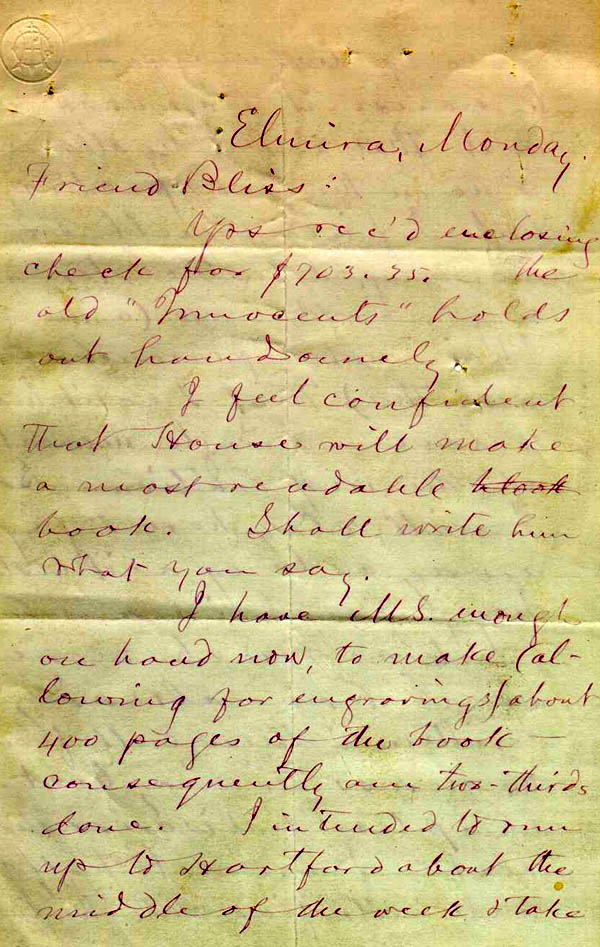 Elmira, Monday.
Friend Bliss:
Yrs rec'd enclosing
check for $703.35. The
old "Innocents" holds
out handsomely.
I feel confident
that House will make
a most readable blook
book. Shall write him
what you say.
I have MS. enough
on hand now, to make (al-
lowing for engravings) about
400 pages of the book —
consequently am two-thirds
done. I intended to run
up to Hartford about the
middle of the week & take